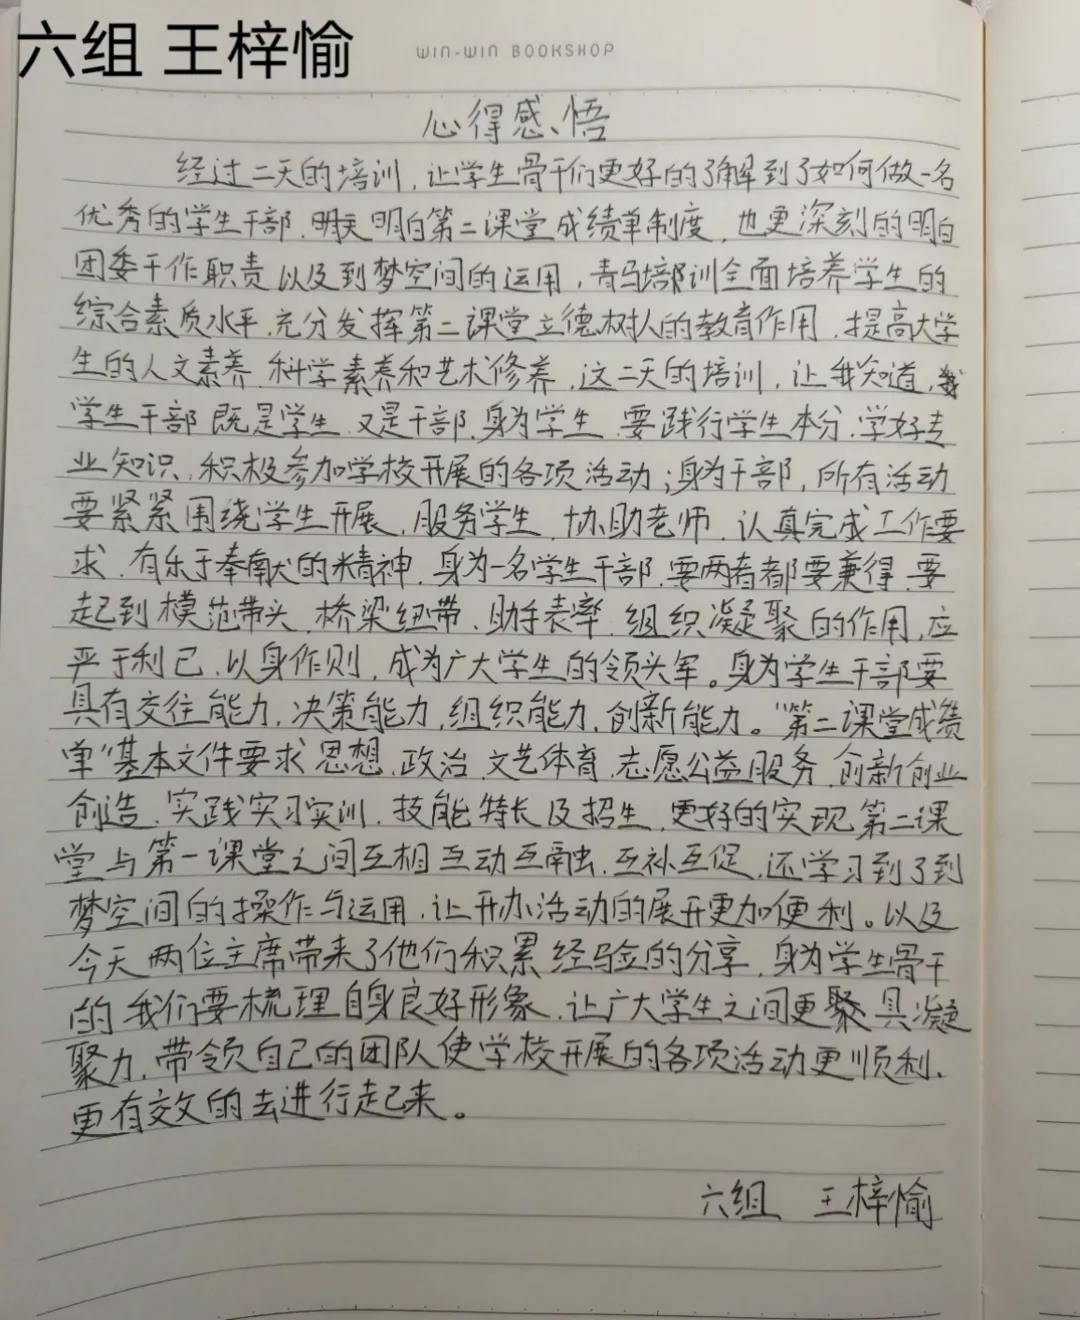 六组 王梓愉
WIN-WIN BOOKSHOP
心得感悟
经过二天的培训,让学生骨干们更好的了解到了如何做一名
优秀的学生干部,明天明白第二课堂成绩单制度,也更深刻的明白
团委干作职责以及到梦空间的运用,青马培部训全面培养学生的
综合素质水平,充分发挥第二课堂立德树人的教育作用,提高大学
生的人文素养,科学素养和艺术修养,这二天的培训,让我知道,我
学生干部既是学生,又是干部,身为学生,要践行学生本分,学好专
业知识,积极参加学校开展的各项活动;身为干部,所有活动
要紧紧围绕学生开展,服务学生,协助老师,认真完成工作要
求,有乐于奉献的精神,身为一名学生干部,要两者都要兼得,要
起到模范带头,桥梁纽带,助手表率,组织凝聚的作用,应
严于利己,以身作则,成为广大学生的领头军。身为学生干部要
具有交往能力,决策能力,组织能力,创新能力。“第二课堂成绩
单”基本文件要求思想,政治,文艺体育,志愿公益服务,创新创业
创造,实践实习实训,技能特长及招生,更好的实现第二课
堂与第一课堂之间互相互动互融,互补互促,还学习到了到
梦空间的操作与运用,让开办活动的展开更加便利。以及
今天两位主席带来了他们积累经验的分享,身为学生骨干
的我们要梳理自身良好形象,让广大学生之间更聚具凝
聚力,带领自己的团队使学校开展的各项活动更顺利、
更有效的去进行起来。
六组 王梓愉